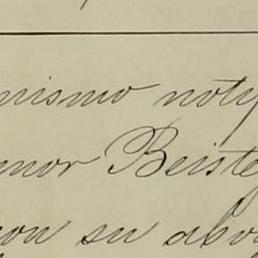 mismo noty
nor Beiste
on su abo